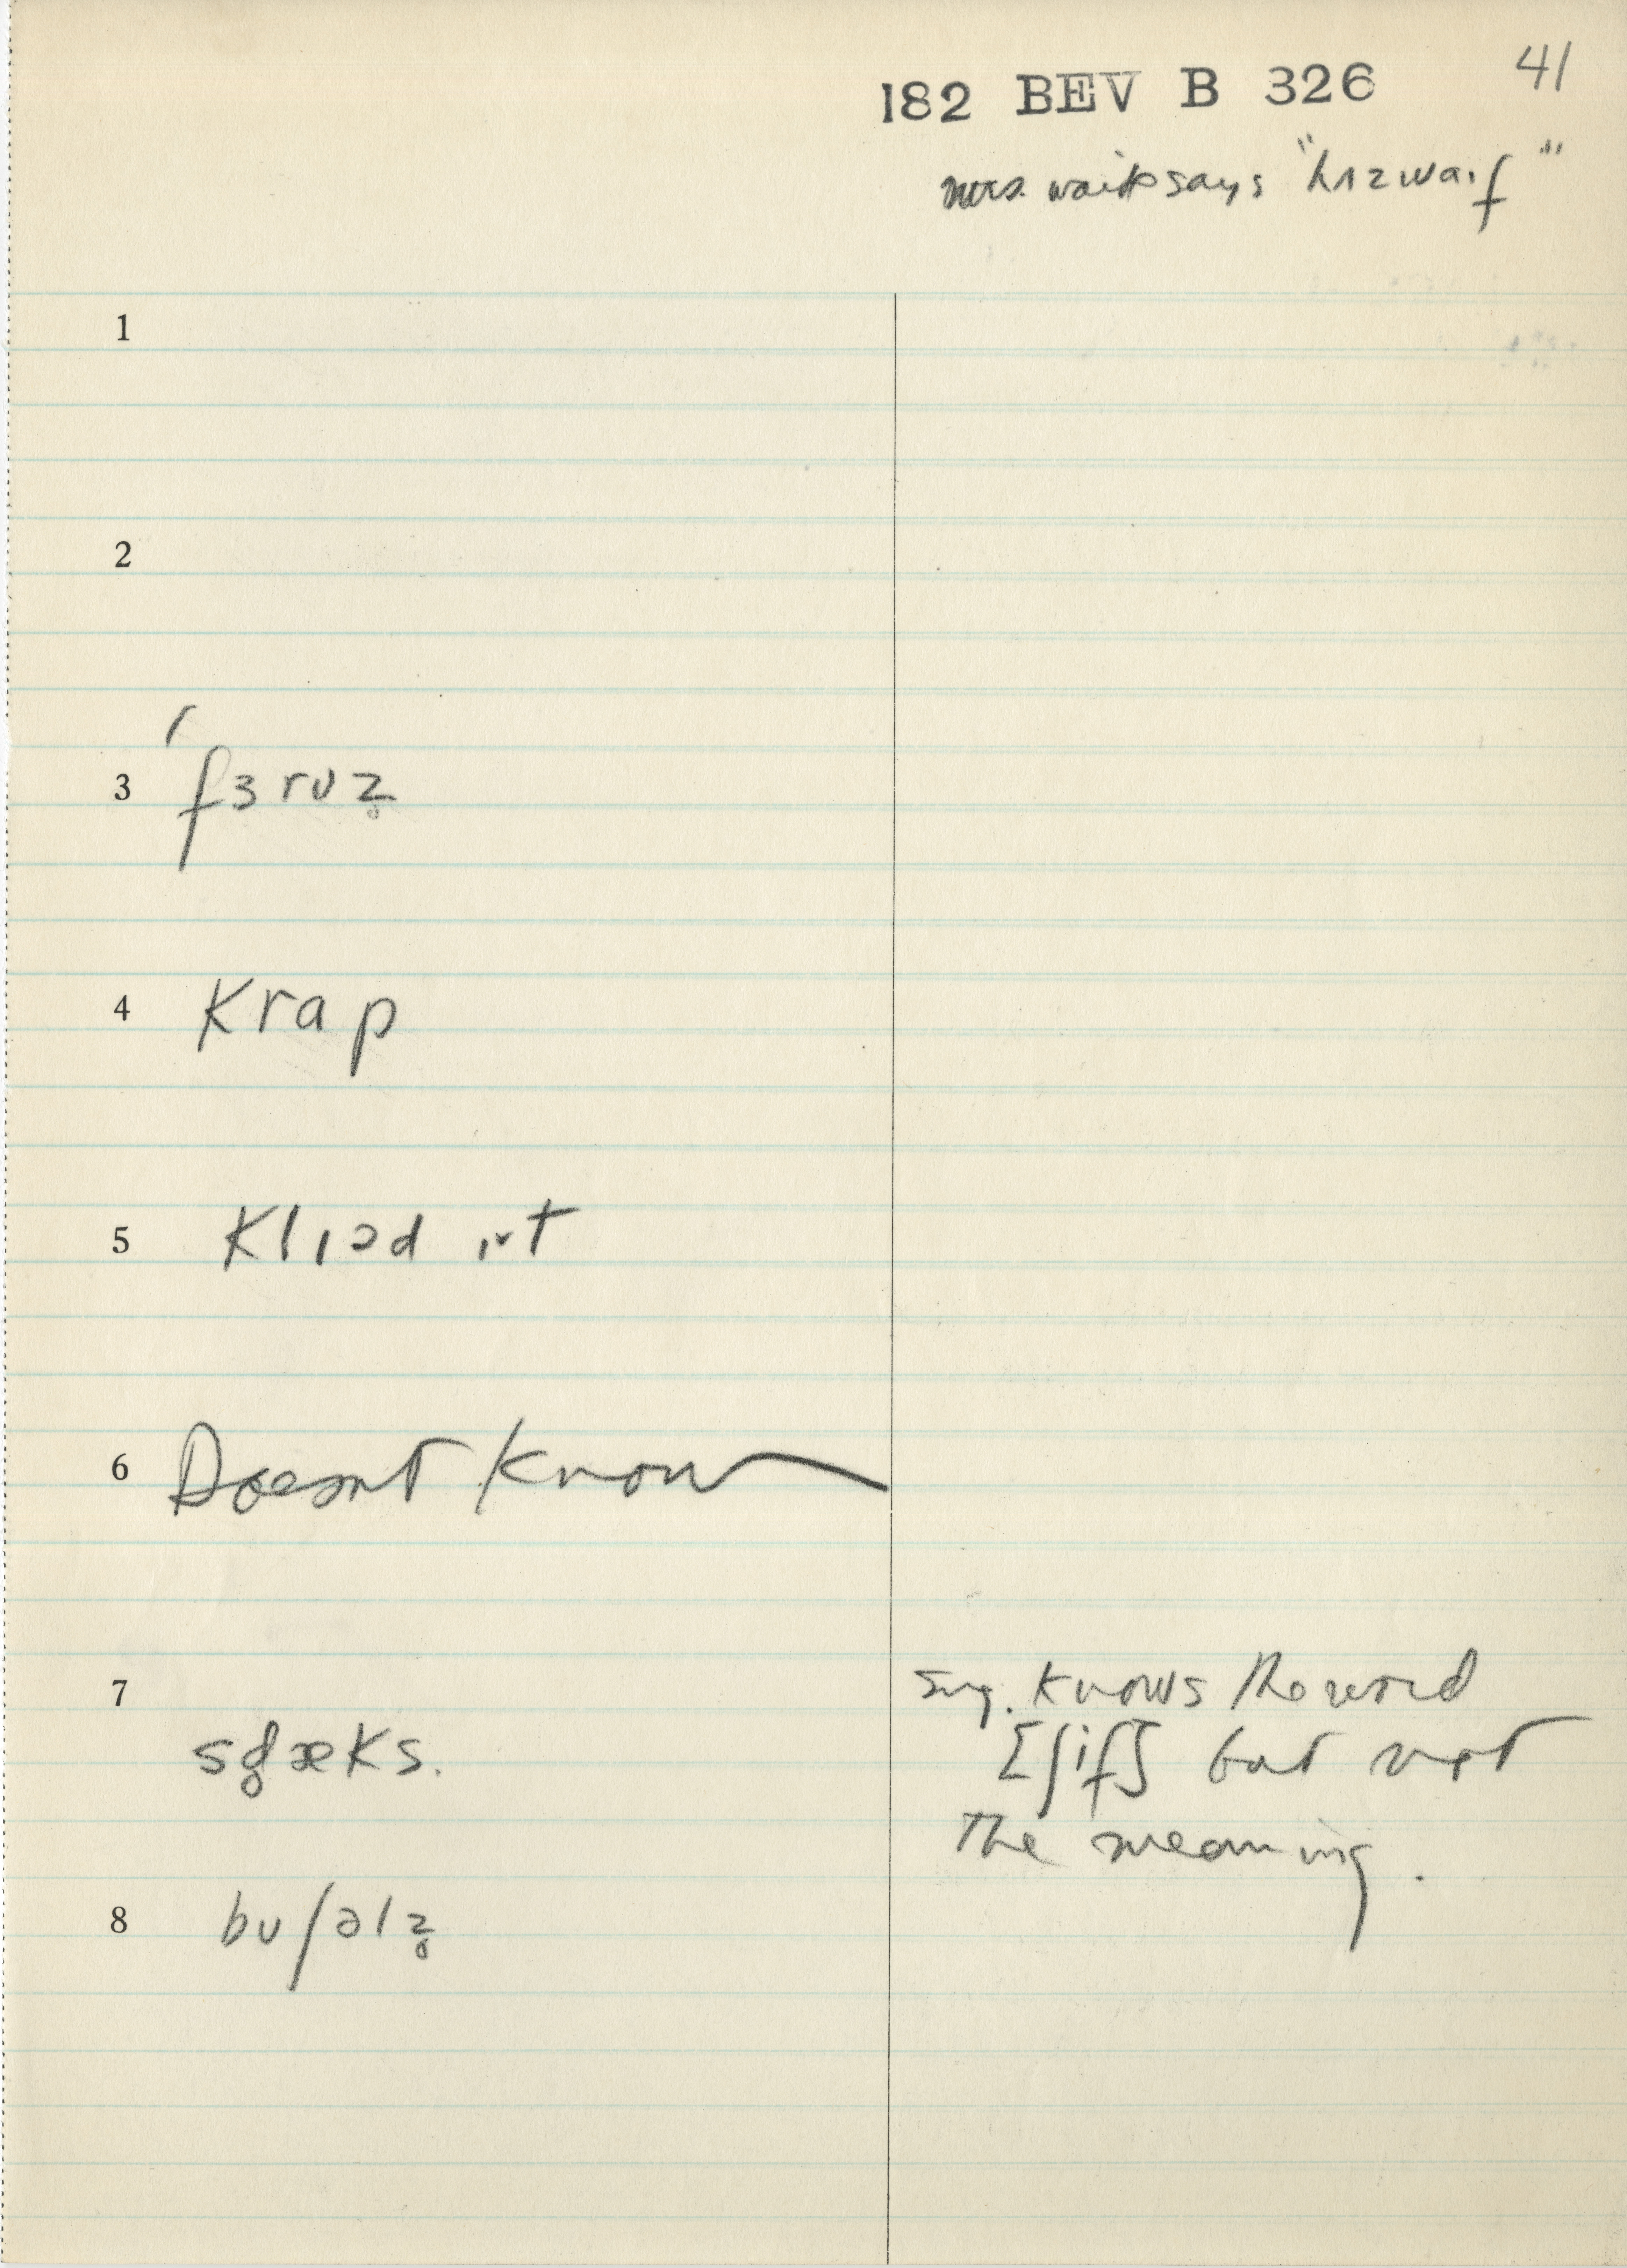 41
182 BEV B 326
mrs. wait says "hʌzwaif"
1
2
3 ˈfɜrʊz̥
4 krap
5 klɪəd ɪˑt
6 Doesnt know
7 sg̥æks.
Sug. knows the word
[ʃif] but not
The meaning.
8 buʃəlz̥